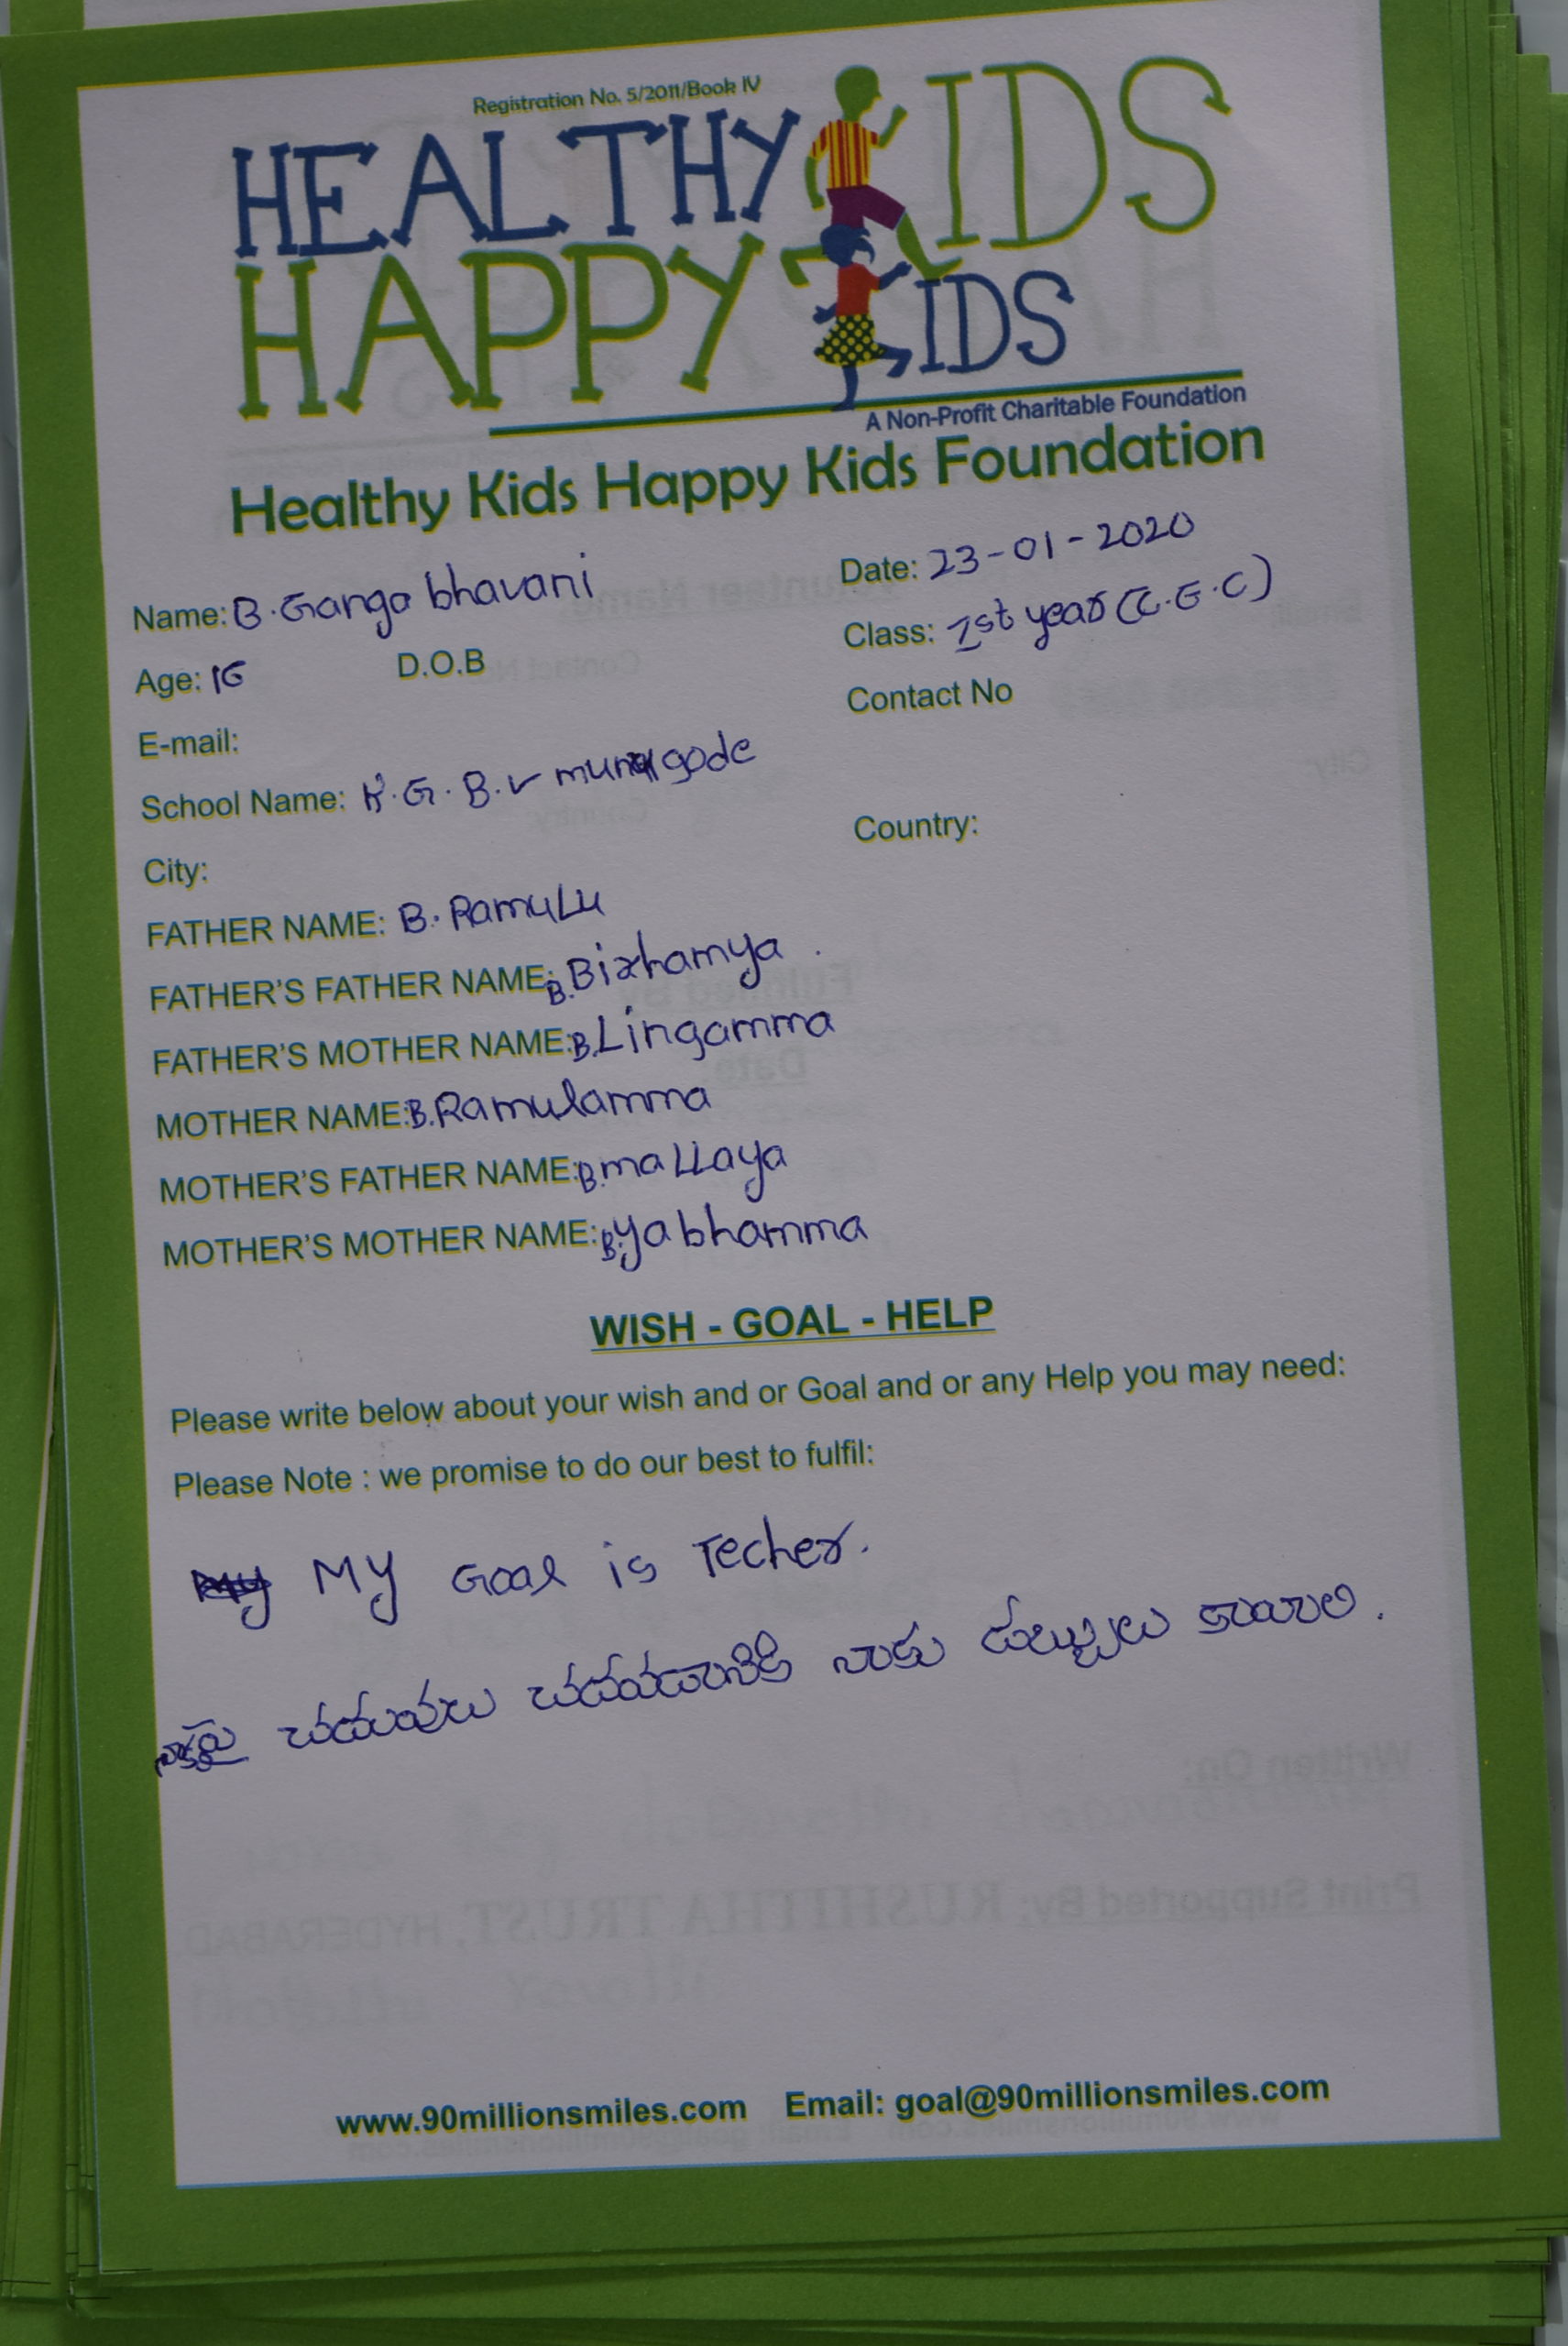 Registration No. 5/2011/Book IV
HEALTHY KIDS
HAPPY KIDS
A Non-Profit Charitable Foundation
Healthy Kids Happy Kids Foundation
Name: B. Ganga bhavani Date: 23-01-2020
Age: 16 D.O.B Class: 1st year (C.E.C)
E-mail: Contact No
School Name: K.G.B.V munugode
City: Country:
FATHER NAME: B. RamuLu
FATHER'S FATHER NAME: B. Bixhamya.
FATHER'S MOTHER NAME: B. Lingamma
MOTHER NAME: B. Ramulamma
MOTHER'S FATHER NAME: B. maLLaya
MOTHER'S MOTHER NAME: B. yabhamma
WISH - GOAL - HELP
Please write below about your wish and or Goal and or any Help you may need:
Please Note : we promise to do our best to fulfil:
MY Goal is Techer.
పై చదువులు చదవడానికి నాకు డబ్బులు కావాలి.
www.90millionsmiles.com Email: goal@90millionsmiles.com